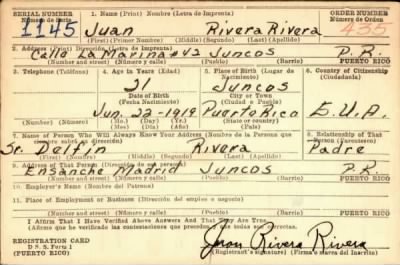 SERIAL NUMBER 1. Name (Print) Nombre (Letra de Imprenta) ORDER NUMBER
Número de Serie Número de Orden
1145 Juan Rivera Rivera 435
(First) (Primer Nombre) (Middle) (Segundo) (Last) (Apellido)
2. Address (Print) Dirección (Letra de Imprenta)
Calle La Marina #42 Juncos P.R.
(Number and street) (Número y calle) (Town) (Pueblo) PUERTO RICO
3. Telephone (Teléfono) 4. Age in Years (Edad) 5. Place of Birth (Lugar de Nacimiento) 6. Country of Citizenship (Ciudadanía)
21 Juncos
Date of Birth Town or City
(Fecha Nacimiento) (Ciudad o Pueblo)
Jun. 22-1919 Puerto Rico E.U.A.
(Mo.) (Day) (Yr.) (State or country)
(Mes) (Día) (Año) (Estado o país)
7. Name of Person Who Will Always Know Your Address (Nombre de la Persona que siempre sabrá su dirección) 8. Relationship of That Person (Parentesco)
Sr. Delfin Rivera Padre
(Mr., Mrs., Miss) (First) (Middle) (Last)
9. Address of That Person (Dirección de esa persona)
Ensanche Madrid Juncos P.R.
(Number and street) (Número y calle) (Town) (Pueblo) PUERTO RICO
10. Employer's Name (Nombre del Patrono)
11. Place of Employment or Business (Dirección del empleo o negocio)
(Number and street) (Número y calle) (Town) (Pueblo) PUERTO RICO
I Affirm That I Have Verified Above Answers And That They Are True.
(Afirmo que he verificado las contestaciones que preceden y que son ciertas.)
REGISTRATION CARD
D. S. S. Form 1
(PUERTO RICO)
Juan Rivera Rivera
(Registrant's signature) (Firma o marca del Inscrito)